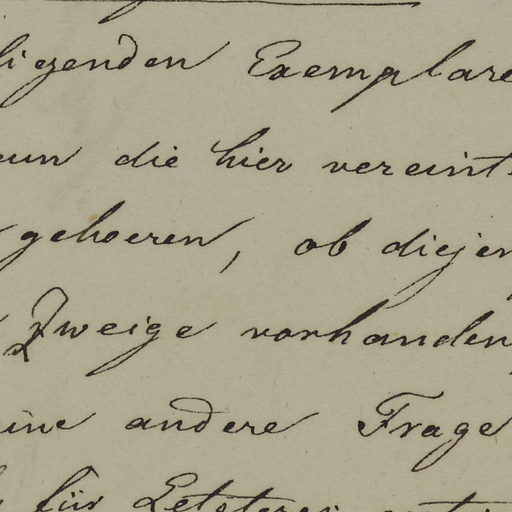 ligenden Exemplare
die hier vereint
gehoeren, ob diejen
Zweige vorhanden,
andere Frage
für Letzteres